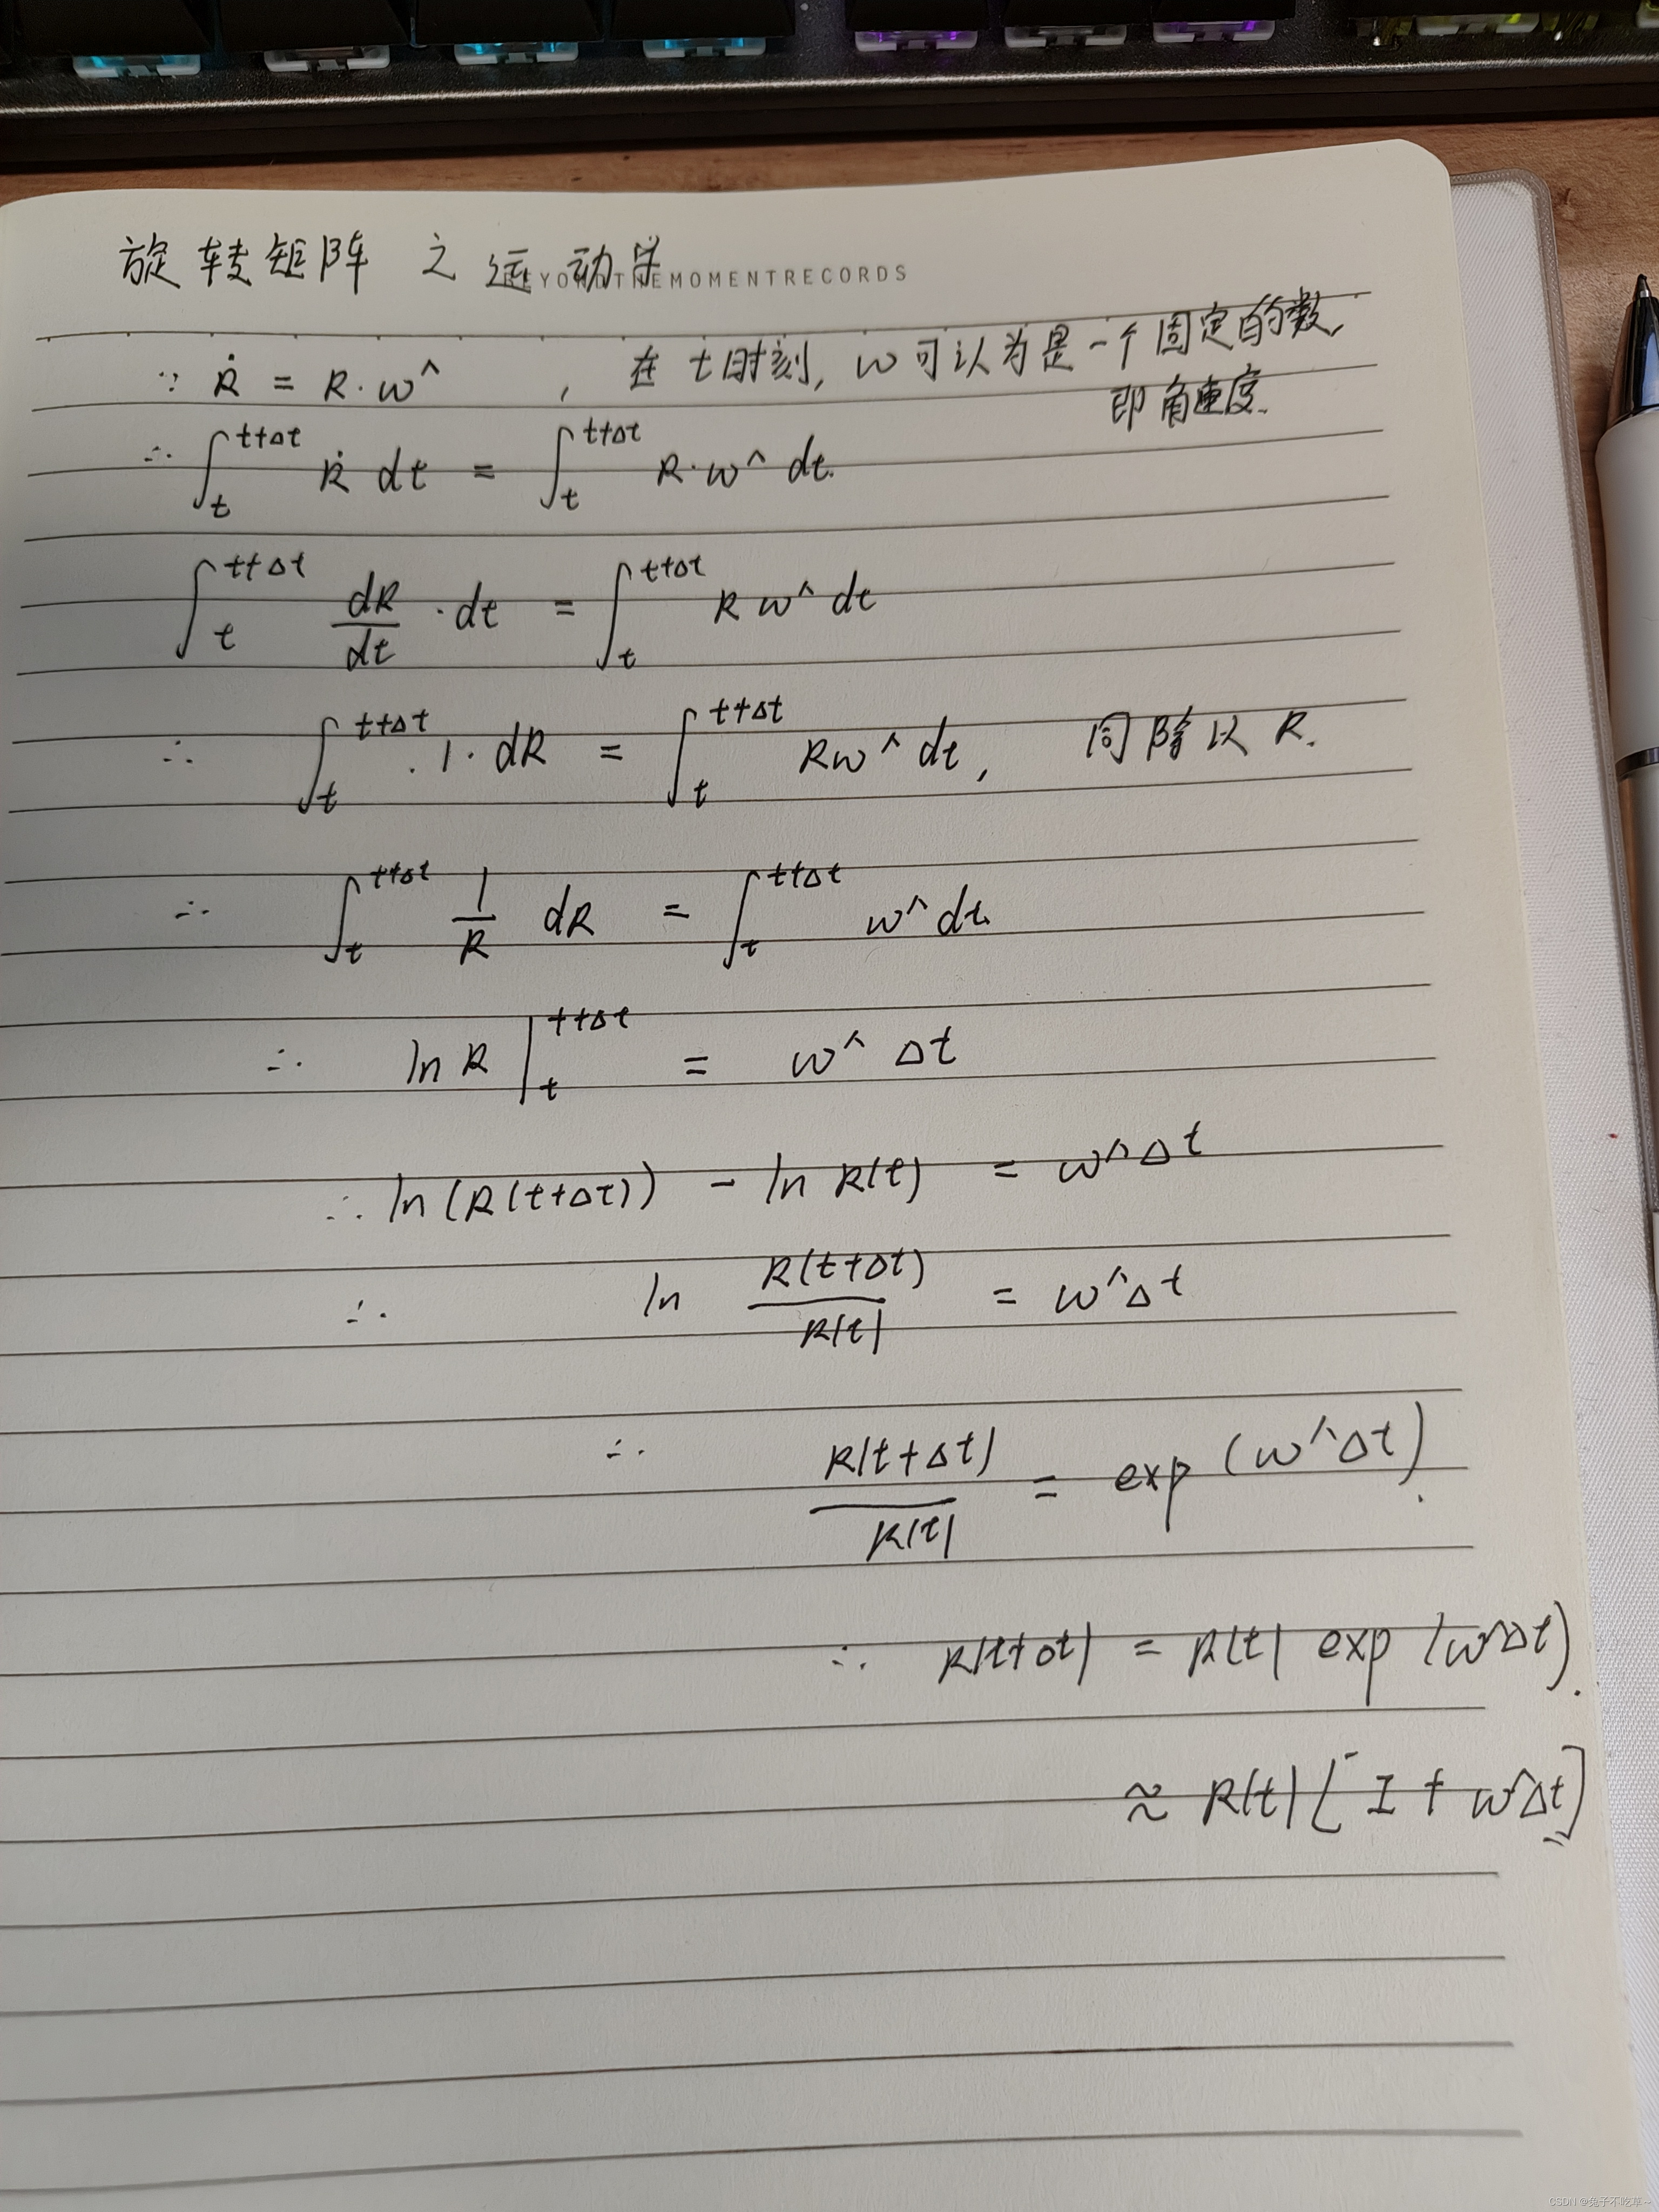 旋转矩阵 之 运动学
BEYONDTHEMOMENTRECORDS
∵ Ṙ = R·w^ , 在 t时刻, w可认为是一个固定的数,
即角速度.
∴ ∫_t^{t+Δt} Ṙ dt = ∫_t^{t+Δt} R·w^ dt.
∫_t^{t+Δt} dR/dt · dt = ∫_t^{t+Δt} R w^ dt
∴ ∫_t^{t+Δt} 1· dR = ∫_t^{t+Δt} R w^ dt, 同除以 R.
∴ ∫_t^{t+Δt} 1/R dR = ∫_t^{t+Δt} w^ dt.
∴ ln R |_t^{t+Δt} = w^ Δt
∴ ln(R(t+Δt)) - ln R(t) = w^Δt
∴ ln R(t+Δt)/R(t) = w^Δt
∴ R(t+Δt)/R(t) = exp(w^Δt).
∴ R(t+Δt) = R(t) exp(w^Δt).
≈ R(t)[I + w^Δt]
CSDN @兔子不吃草~